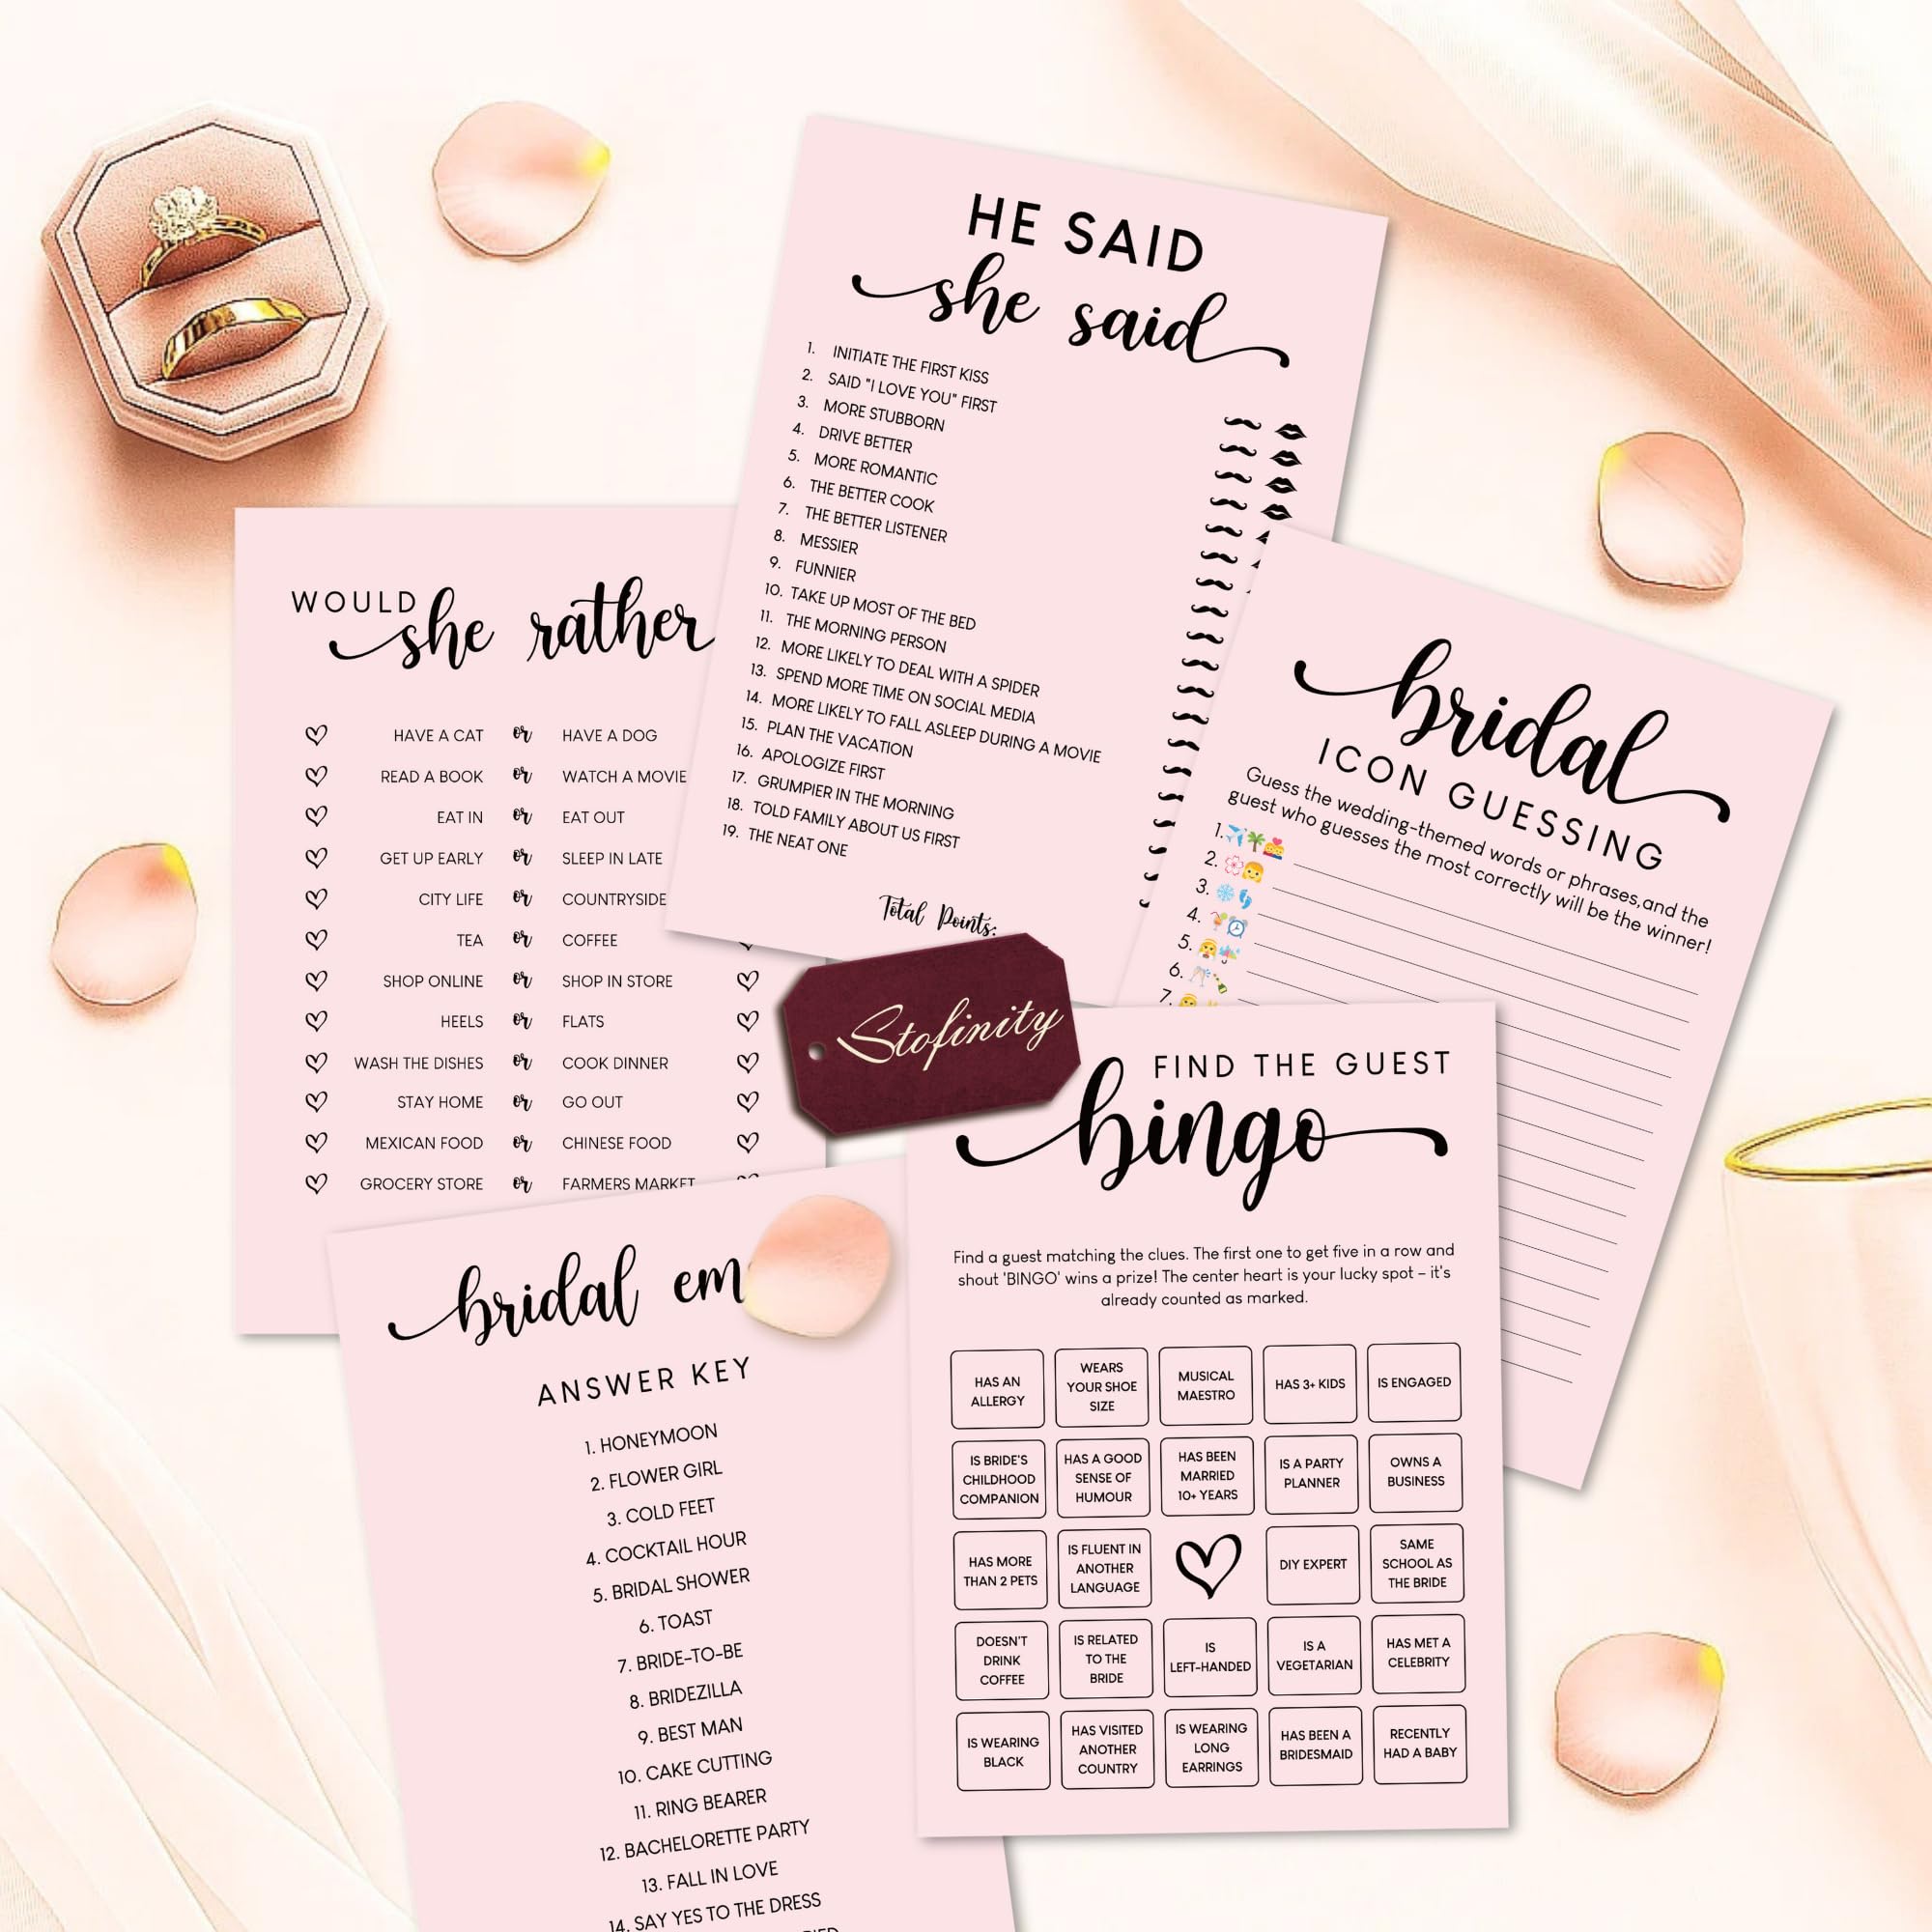 HE SAID
she said
1. INITIATE THE FIRST KISS
2. SAID "I LOVE YOU" FIRST
3. MORE STUBBORN
4. DRIVE BETTER
5. MORE ROMANTIC
6. THE BETTER COOK
7. THE BETTER LISTENER
8. MESSIER
9. FUNNIER
10. TAKE UP MOST OF THE BED
11. THE MORNING PERSON
12. MORE LIKELY TO DEAL WITH A SPIDER
13. SPEND MORE TIME ON SOCIAL MEDIA
14. MORE LIKELY TO FALL ASLEEP DURING A MOVIE
15. PLAN THE VACATION
16. APOLOGIZE FIRST
17. GRUMPIER IN THE MORNING
18. TOLD FAMILY ABOUT US FIRST
19. THE NEAT ONE
Total Points:
WOULD
she rather
HAVE A CAT or HAVE A DOG
READ A BOOK or WATCH A MOVIE
EAT IN or EAT OUT
GET UP EARLY or SLEEP IN LATE
CITY LIFE or COUNTRYSIDE
TEA or COFFEE
SHOP ONLINE or SHOP IN STORE
HEELS or FLATS
WASH THE DISHES or COOK DINNER
STAY HOME or GO OUT
MEXICAN FOOD or CHINESE FOOD
GROCERY STORE or FARMERS MARKET
bridal
ICON GUESSING
Guess the wedding-themed words or phrases,and the
guest who guesses the most correctly will be the winner!
1.
2.
3.
4.
5.
6.
7.
Stofinity
FIND THE GUEST
bingo
Find a guest matching the clues. The first one to get five in a row and
shout 'BINGO' wins a prize! The center heart is your lucky spot – it's
already counted as marked.
HAS AN
ALLERGY
WEARS
YOUR SHOE
SIZE
MUSICAL
MAESTRO
HAS 3+ KIDS
IS ENGAGED
IS BRIDE'S
CHILDHOOD
COMPANION
HAS A GOOD
SENSE OF
HUMOUR
HAS BEEN
MARRIED
10+ YEARS
IS A PARTY
PLANNER
OWNS A
BUSINESS
HAS MORE
THAN 2 PETS
IS FLUENT IN
ANOTHER
LANGUAGE
DIY EXPERT
SAME
SCHOOL AS
THE BRIDE
DOESN'T
DRINK
COFFEE
IS RELATED
TO THE
BRIDE
IS
LEFT-HANDED
IS A
VEGETARIAN
HAS MET A
CELEBRITY
IS WEARING
BLACK
HAS VISITED
ANOTHER
COUNTRY
IS WEARING
LONG
EARRINGS
HAS BEEN A
BRIDESMAID
RECENTLY
HAD A BABY
bridal em
ANSWER KEY
1. HONEYMOON
2. FLOWER GIRL
3. COLD FEET
4. COCKTAIL HOUR
5. BRIDAL SHOWER
6. TOAST
7. BRIDE-TO-BE
8. BRIDEZILLA
9. BEST MAN
10. CAKE CUTTING
11. RING BEARER
12. BACHELORETTE PARTY
13. FALL IN LOVE
14. SAY YES TO THE DRESS